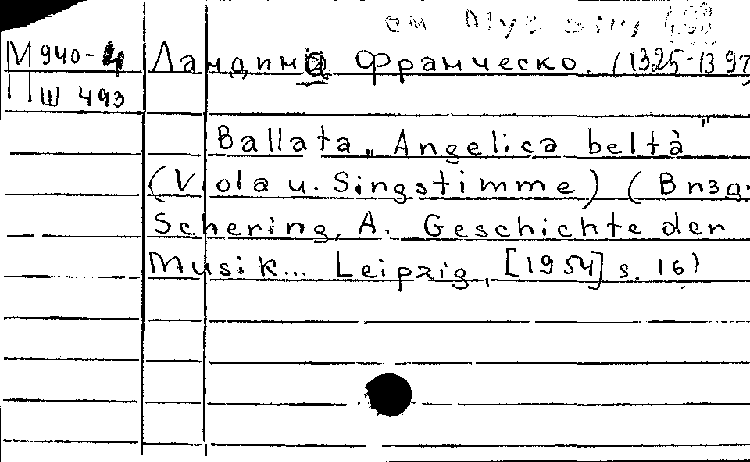 см Муз
М 940-4 Ландино Франческо. (1325-1397
Ш 493
Ballata „Angelica beltà"
(Viola u. Singstimme) (В изд.
Schering, A. Geschichte der
Musik... Leipzig, [1954] s. 16)